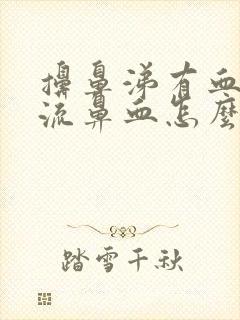 擤鼻涕有血
流鼻血怎麼
踏雪千秋